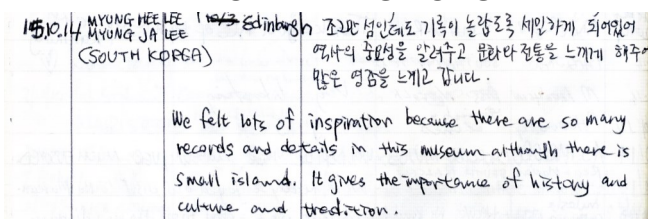 15.10.14 MYUNG HEE LEE Edinburgh 조그만 섬인데도 기록이 놀랍도록 세밀하게 되어있어
MYUNG JA LEE 역사의 중요성을 알려주고 문화와 전통을 느끼게 해주어
(SOUTH KOREA) 많은 영감을 느끼고 갑니다.
We felt lots of inspiration because there are so many
records and details in this museum although there is
small island. It gives the importance of history and
culture and tredition.